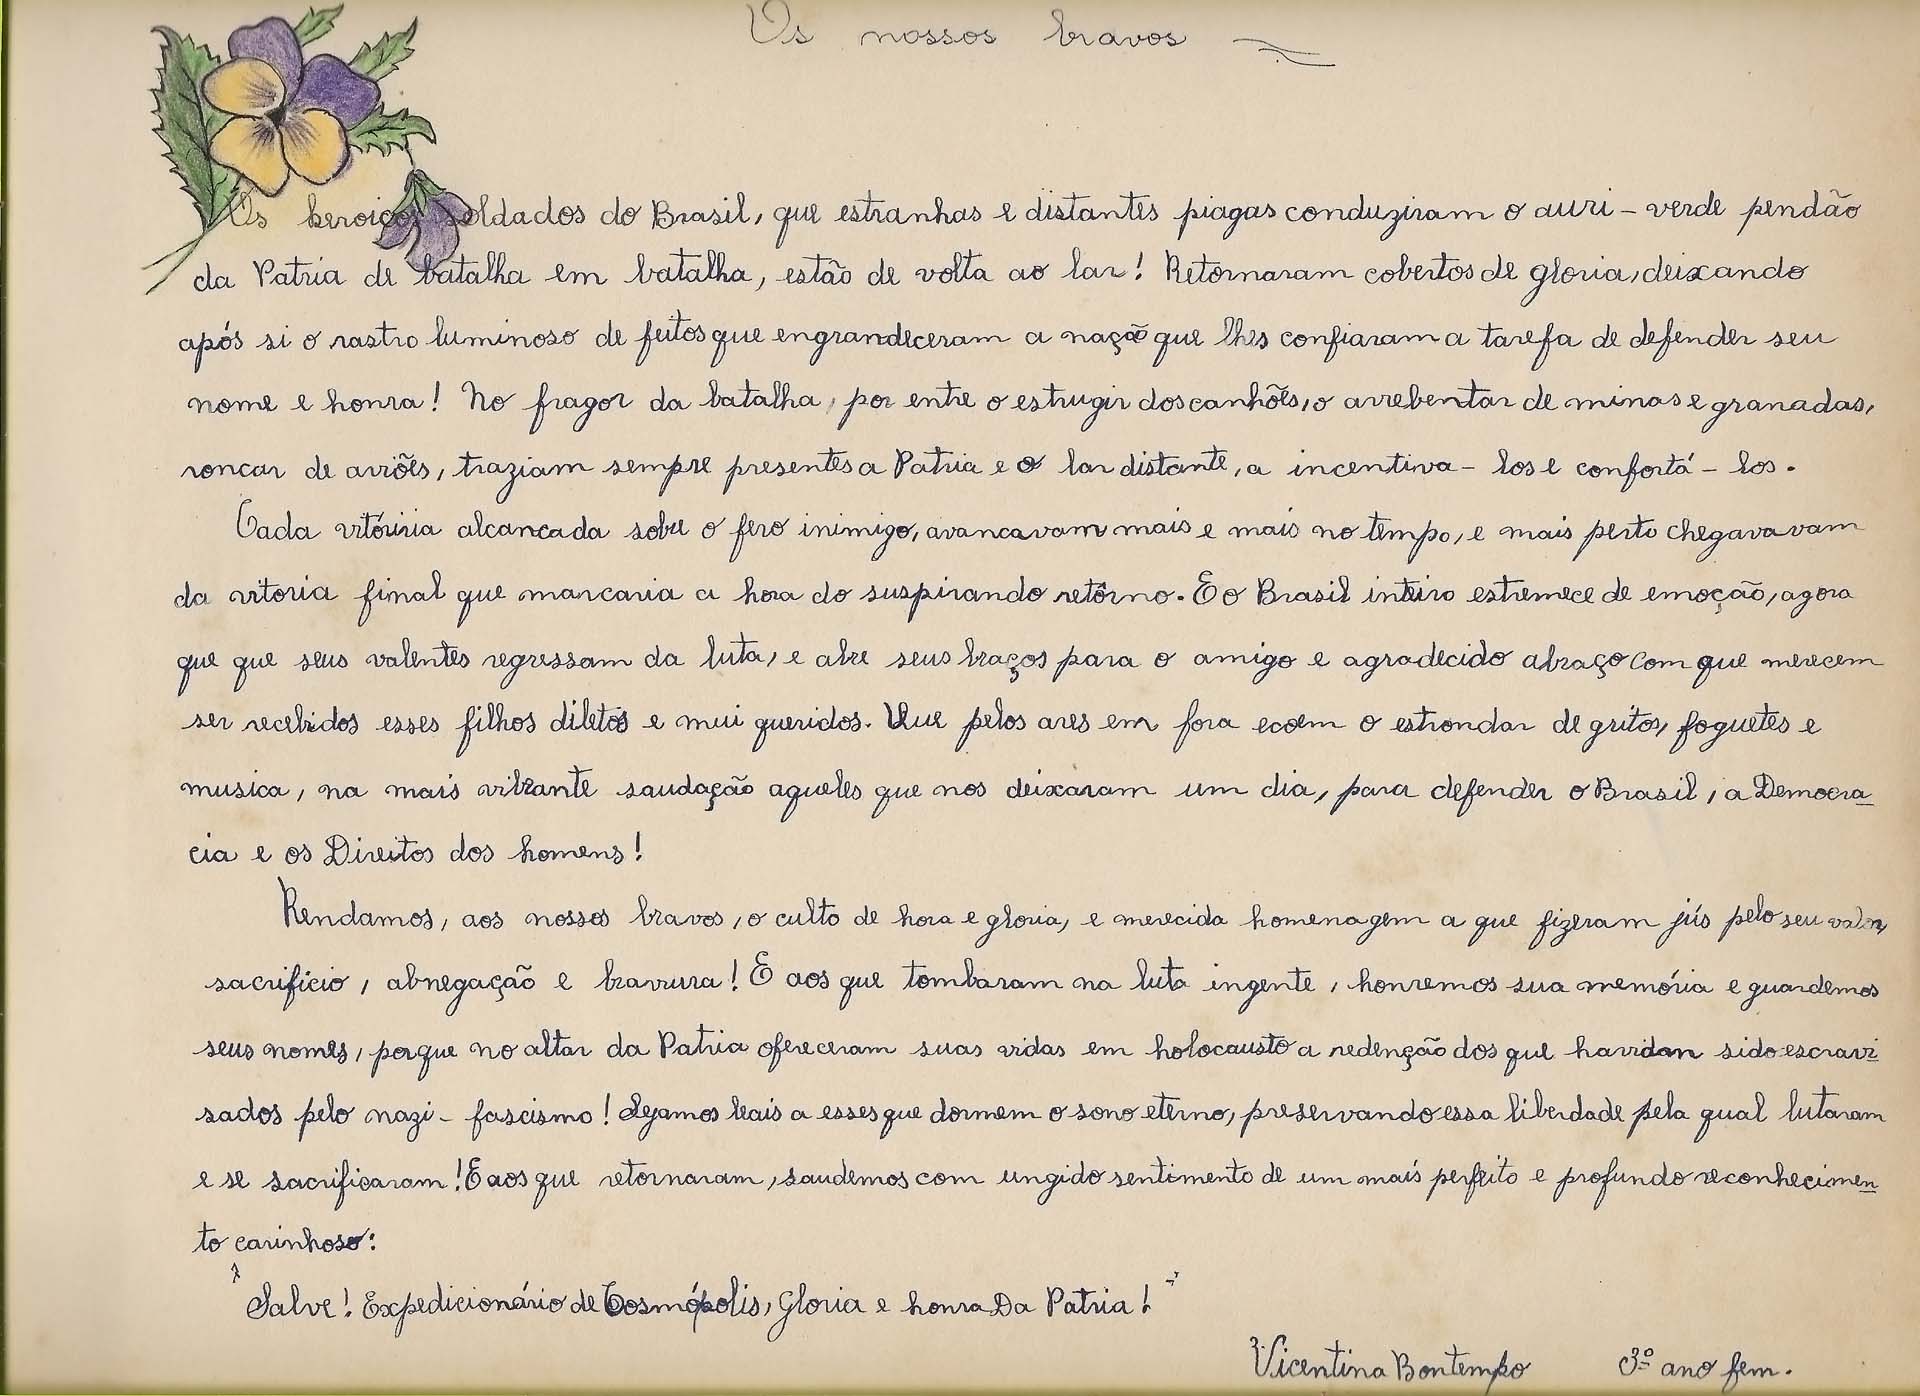 Os nossos bravos
Os heroicos soldados do Brasil, que estranhas e distantes piagas conduziram o auri - verde pendão
da Patria de batalha em batalha, estão de volta ao lar! Retornaram cobertos de gloria, deixando
após si o rastro luminoso de feitos que engrandeceram a nação que lhes confiaram a tarefa de defender seu
nome e honra! No fragor da batalha, por entre o estrugir dos canhões, o arrebentar de minas e granadas,
roncar de aviões, traziam sempre presentes a Patria e o lar distante, a incentiva - los e confortá - los.
Cada vitóriria alcancada sobre o fero inimigo, avancavam mais e mais no tempo, e mais perto chegavavam
da vitoria final que marcaria a hora do suspirando retôrno. E o Brasil inteiro estremece de emoção, agora
que que seus valentes regressam da luta, e abre seus braços para o amigo e agradecido abraço com que merecem
ser recebidos esses filhos diletos e mui queridos. Que pelos ares em fora ecoem o estrondar de gritos, foguetes e
musica, na mais vibrante saudação aqueles que nos deixaram um dia, para defender o Brasil, a Democra
cia e os Direitos dos homens!
Rendamos, aos nossos bravos, o culto de hora e gloria, e merecida homenagem a que fizeram jús pelo seu valor,
sacrifício, abnegação e bravura! E aos que tombaram na luta ingente, honremos sua memória e guardemos
seus nomes, porque no altar da Patria ofereceram suas vidas em holocausto a redenção dos que havidam sido escravi
sados pelo nazi - fascismo! Sejamos leais a esses que dormem o sono eterno, preservando essa liberdade pela qual lutaram
e se sacrificaram! E aos que retornaram, saudemos com ungido sentimento de um mais perfeito e profundo reconhecimen
to carinhoso:
"Salve! Expedicionário de Cosmópolis, Gloria e honra Da Patria!"
Vicentina Bontempo 3º ano fem.